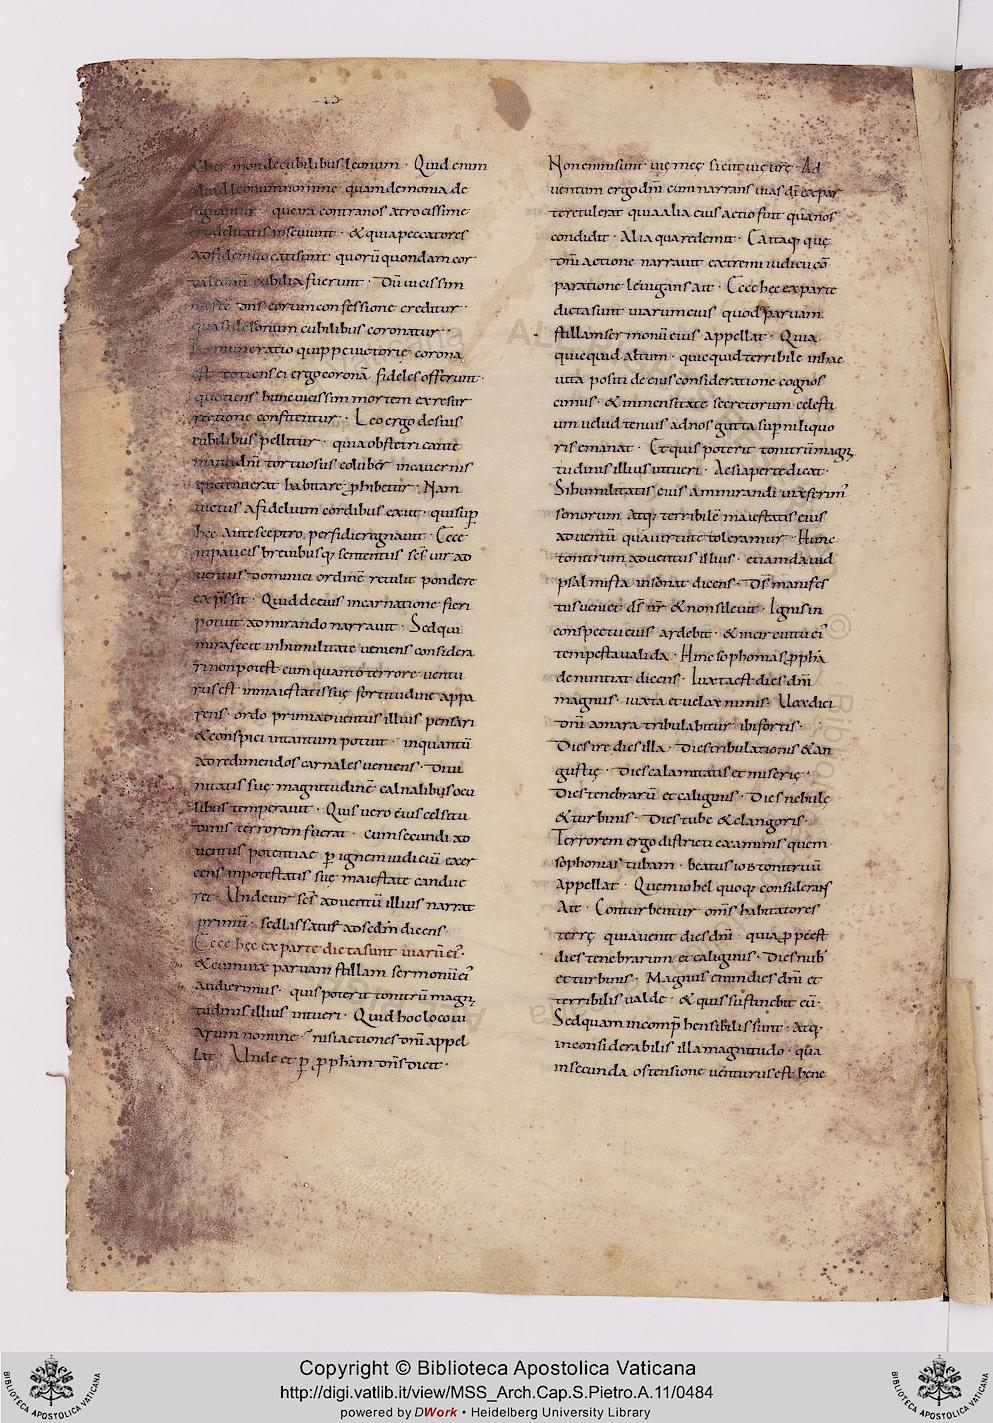 & her mon de cubilibus leonum · Quid enim
aliud leonum nomine quam demonia de
signantur · que ira contra nos atrocissime
crudelitatis inseuiunt · & quia peccatores
ad fidem uocati sunt quorū quondam cor
da leonū cubilia fuerunt · Dū uicissim
morte dn̄s eorum confessione creditur
quasi de leonum cubilibus coronatur ·
Remuneratio quippe uictorię corona
est totiens ei ergo coronā fideles offerunt ·
quotiens hunc uicissim mortem ex resur
rectione confitentur · Leo ergo de suis
cubilibus pellitur · quia obstetricante
manu dn̄i tortuosus coluber in cauernis
quē tenuerat habitare ꝓhibetur · Nam
uictus a fidelium cordibus exiit · qui sup̄
hęc ante sceptro perfidie regnauit · Ecce
in paucis breuibusq; sententiis sc̄s uir ad
uentus dominici ordinē retulit pondere
exp̄ssit · Quid de eius incarnatione fieri
potuit admirando narrauit · Sed qui
mira fecit in humilitate ueniens considera
ri non potest cum quanto terrore uentu
rus est in maiestatis suę fortitudine appa
rens · ordo primi aduentus illius pensari
& conspici in tantum potuit · in quantū
ad redimendos carnales ueniens · diui
nitatis suę magnitudinē calnalibus ocu
lis temperauit · Quis uero eius celsitu
dinis terrorem fuerat · cum secundi ad
uentus potentiae p̄ ignem iudiciū exer
cens in potestatis suę maiestate candue
ret · Unde uir sc̄s aduentū illius narrat
primū · sed lassatus ad scdm̄ dicens ·
Ecce hęc ex parte dicta sunt uiarū ei᾽ ·
& cum uix paruam stillam sermoniī ei᾽
audierimus · quis poterit tonitrū magni
tudinis illius intueri · Quid hoc loco ui
arum nomine · nisi actiones dn̄i appel
lat · Unde et p̄ ꝓpham dn̄s dicit ·
Non enim sunt uię męę sicut uię ur̄ę · Ad
uentum ergo dn̄i cum narrans uias dī ex par
te retulerat quia alia eius actio fuit qua nos
condidit · Alia qua redemit · Ea itaq; quę
dn̄i actione narrauit extremi iudicii cō
paratione leuigans ait · Ecce hęc ex parte
dicta sunt uiarum eius quod paruam
stillam sermonū eius appellat · Quia
quicquid altum · quicquid terribile in hac
uita positi de eius consideratione cognos
cimus · & inmensitate secretorum celesti
um uelud tenuis ad nos gutta sup̄ni liquo
ris emanat · Et quis poterit tonitrū magni
tudinis illius intueri · Ac si aperte dicat ·
Si humilitatis eius ammirandi uix ferim᾽
sonorum atq; terribilē maiestatis eius
aduentū qua uirtute toleramus · Hunc
tonitrum aduentus illius · etiam dauid
psalmista insonat dicens · Ds̄ manifes
tus ueniet ds̄ nr̄ & non silebit · Ignis in
conspectu eius ardebit · & in circuitu ei᾽
tempesta ualida · Hinc sophonias ꝓpha
denuntiat dicens · Iuxta est dies dn̄i
magnus · iuxta et uelax nimis · Uox diei
dn̄i amara tribulabitur ibi fortis ·
Dies irę dies illa · Dies tribulationis & an
gustię · Dies calamitatis et miserię ·
Dies tenebrarū et caliginis · Dies nebulę
& turbinis · Dies tubę & clangoris ·
Terrorem ergo districti examinis quem
sophonias tubam · beatus iob tonitruū
appellat · Quem iohel quoq; considerans
Ait · Conturbentur om̄s habitatores
terrę quia uenit dies dn̄i · quia ꝓpe est
dies tenebrarum et caliginis · Dies nub᾽
et turbinis · Magnus enim dies dn̄i et
terribilis ualde · & quis sustinebit eū ·
Sed quam incomp̄hensibilis sunt · atq;
inconsiderabilis illa magnitudo · qua
in secunda ostensione uenturus est bene
Copyright © Biblioteca Apostolica Vaticana
http://digi.vatlib.it/view/MSS_Arch.Cap.S.Pietro.A.11/0484
powered by DWork • Heidelberg University Library
BIBLIOTECA APOSTOLICA VATICANA
BIBLIOTECA APOSTOLICA VATICANA